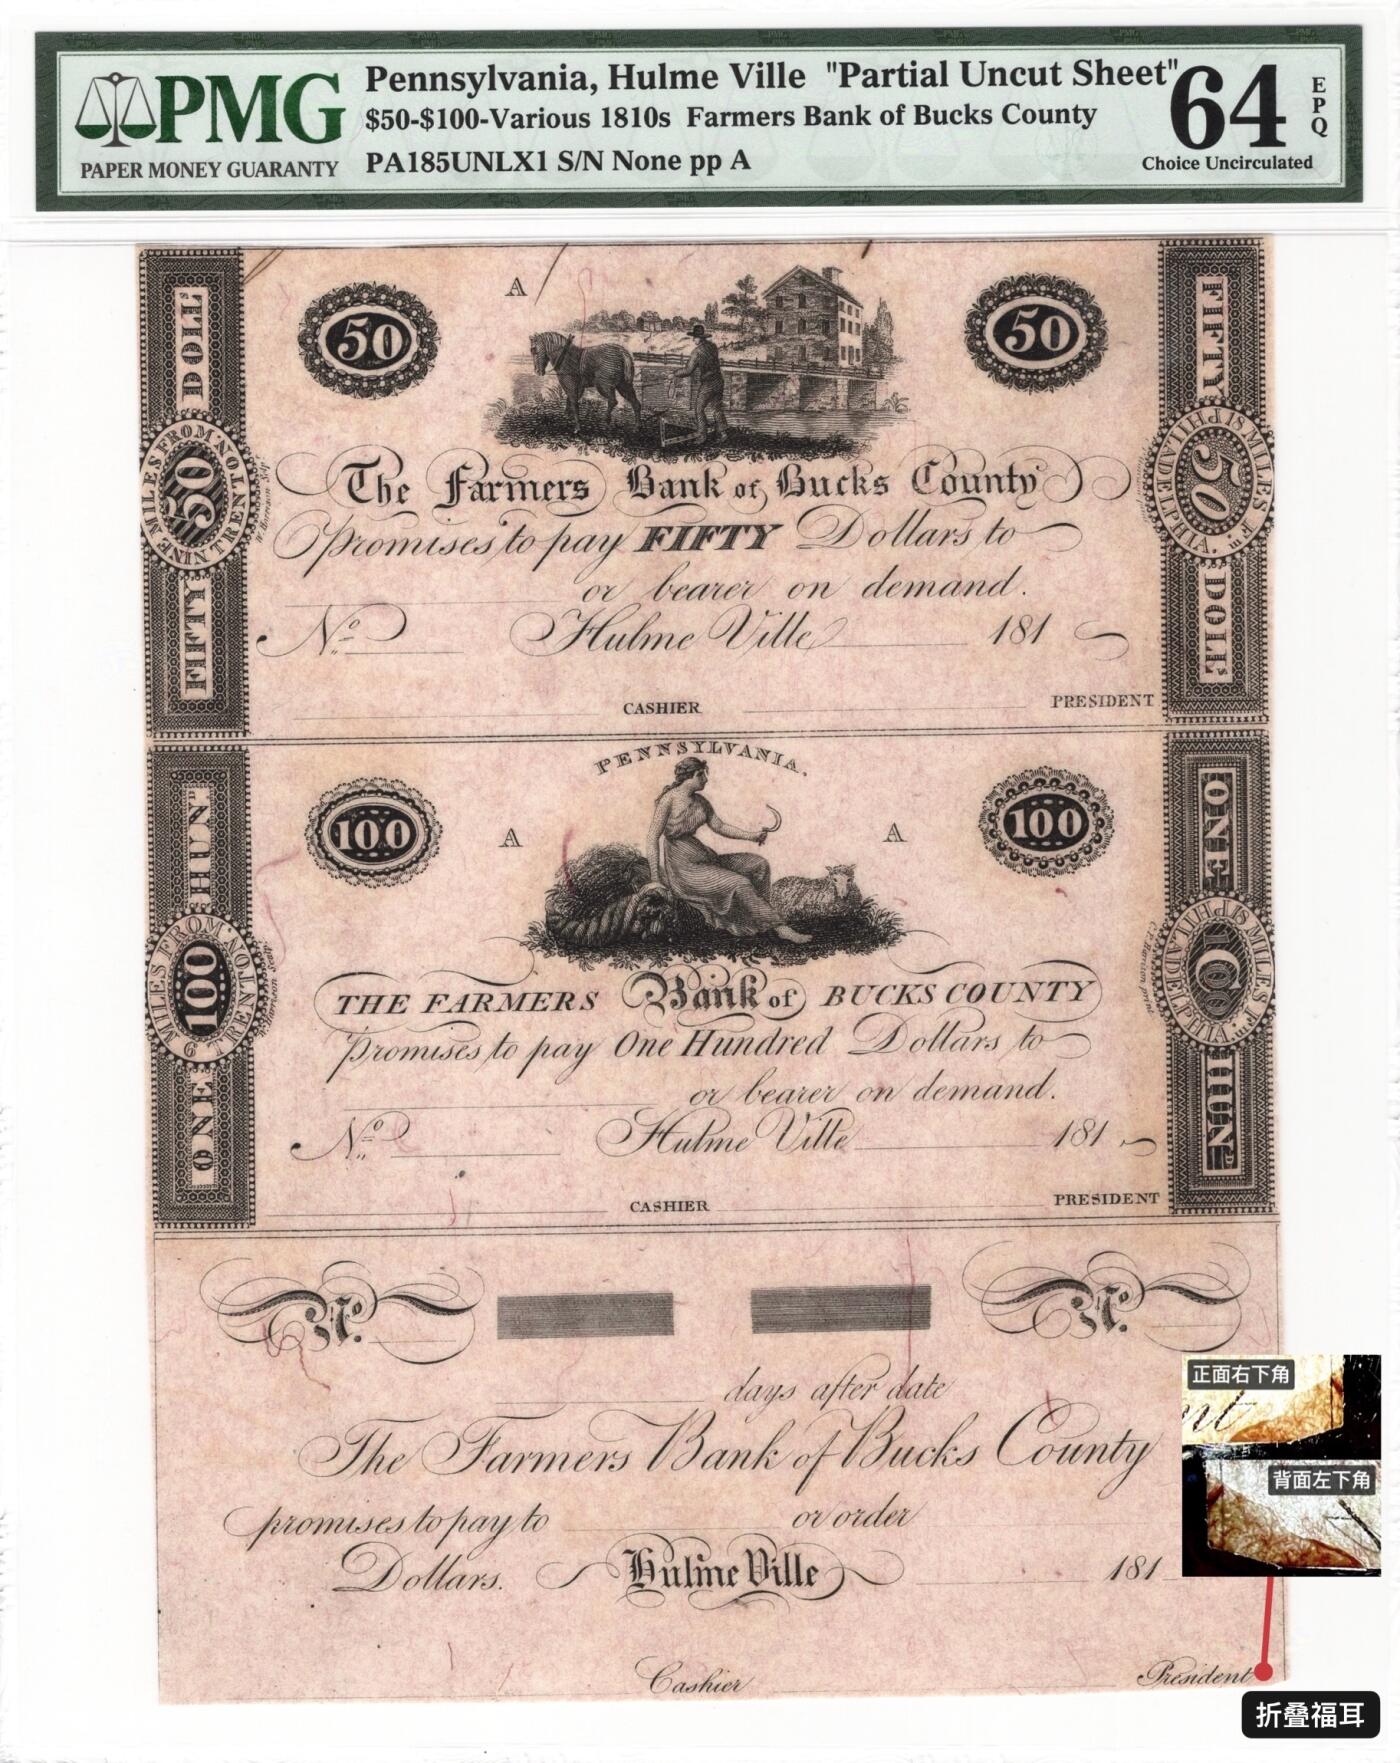 PMG
PAPER MONEY GUARANTY
Pennsylvania, Hulme Ville "Partial Uncut Sheet"
$50-$100-Various 1810s Farmers Bank of Bucks County
PA185UNLX1 S/N None pp A
64
EPQ
Choice Uncirculated
A
50
50
FIFTY DOLLˢ
NINE MILES FROM TRENTON
50
FIFTY DOLLˢ
18 MILES Fᵐ PHILADELPHIA.
50
The Farmers Bank of Bucks County
Promises to pay FIFTY Dollars to
or bearer on demand.
Nº Hulme Ville 181
CASHIER PRESIDENT
PENNSYLVANIA.
100 A A 100
ONE HUNᴰ
9 MILES FROM TRENTON
100
ONE HUNᴰ
18 MILES Fᵐ PHILADELPHIA
100
THE FARMERS Bank of BUCKS COUNTY
Promises to pay One Hundred Dollars to
or bearer on demand.
Nº Hulme Ville 181
CASHIER PRESIDENT
Nº. Nº.
days after date
The Farmers Bank of Bucks County
promises to pay to or order
Dollars. Hulme Ville 181
Cashier President
正面右下角
nt
背面左下角
折叠福耳